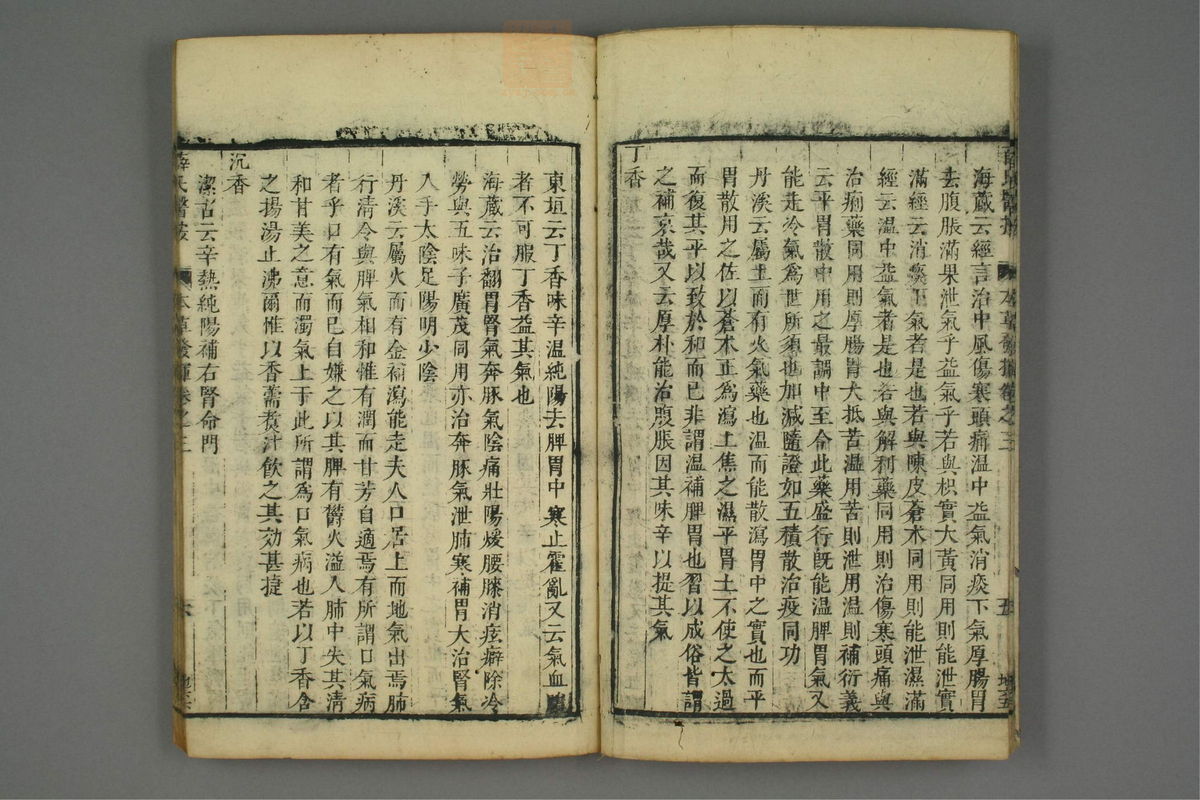 海藏云經言治中風傷寒頭痛溫中益氣消痰下氣厚腸胃
去腹脹滿果泄氣乎益氣乎若與枳實大黃同用則能泄實
滿經云消痰下氣者是也若與陳皮蒼术同用則能泄濕滿
經云溫中益氣者是也若與解利藥同用則治傷寒頭痛與
治痢藥同用則厚腸胃大抵苦溫用苦則泄用溫則補衍義
云平胃散中用之最調中至今此藥盛行既能溫脾胃氣又
能走冷氣為世所須也加減隨證如五積散治疫同功
丹溪云屬土而有火氣藥也溫而能散瀉胃中之實也而平
胃散用之佐以蒼术正為瀉上焦之濕平胃土不使之太過
而復其平以致於和而已非謂溫補脾胃也習以成俗皆謂
之補哀哉又云厚朴能治腹脹因其味辛以提其氣
丁香
東垣云丁香味辛溫純陽去脾胃中寒止霍亂又云氣血
者不可服丁香益其氣也
海藏云治翻胃腎氣奔豚氣陰痛壯陽煖腰膝消痃癖除冷
勞與五味子廣茂同用亦治奔豚氣泄肺寒補胃大治腎氣
入手太陰足陽明少陰
丹溪云屬火而有金補瀉能走夫人口居上而地氣出焉肺
行清令與脾氣相和惟有潤而甘芳自適焉有所謂口氣病
者乎口有氣而已自嫌之以其脾有鬱火溢入肺中失其清
和甘美之意而濁氣上干此所謂為口氣病也若以丁香含
之揚湯止沸爾惟以香薷煑汁飲之其効甚捷
沉香
潔古云辛熱純陽補右腎命門
薛氏醫 本草發揮卷之三 六